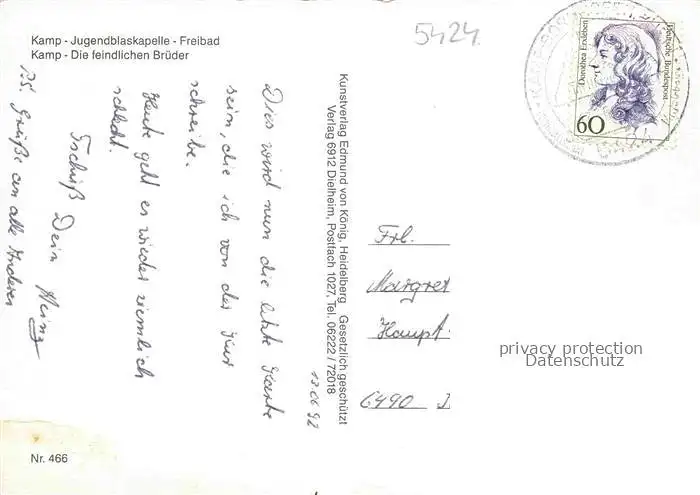 5424
Kamp - Jugendblaskapelle - Freibad
Kamp - Die feindlichen Brüder
Dorothea Erxleben
Deutsche Bundespost
60
13.06.92
Dies wird nun die letzte Karte
sein, die ich von der Kur
schreibe.
Heute geht es wieder ziemlich
schlecht.
Tschüß Dein Heinz
PS. Grüße an alle Anderen
Kunstverlag Edmund von König, Heidelberg Gesetzlich geschützt
Verlag 6912 Dielheim, Postfach 1027, Tel. 06222 / 72018
Frl.
Margret
Haupt
6490
privacy protection
Datenschutz
Nr. 466